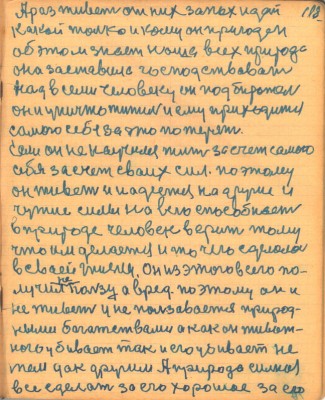 113
А раз живет от них запах идай
какой только и кому он пригоден
об этом знает наша всех природа
она заставила господствоват
над всеми человеку он подбирожал
он и уничтожител и ему приходится
самого себя за это потерят.
Если он не научился жит за счет самого
себя за счет своих сил. поэтому
он живет и надеется на другие и
чужие силы на него способнает
в природе человек верит тому
что им делается и то чего сделано
в своей жизни. Он из этого всего по-
лучил не ползу а вред поэтому он и
не живет и не ползавается природ-
ными богатствами а как он живот-
ного убивает так и его убивает не
тем дак другим А природа силная
все сделат за его хорошое за его